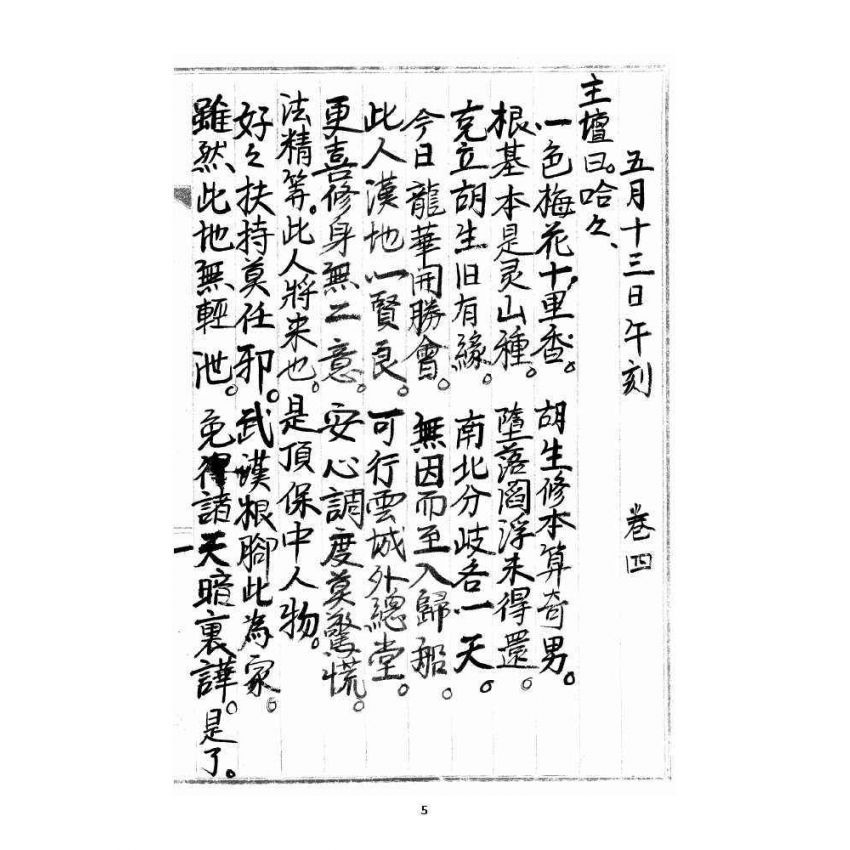 五月十三日午刻　　卷四
主壇曰。哈々、
一色梅花十里香。胡生修本算奇男。
根基本是灵山種。墮落閻浮未得還。
克立胡生旧有緣。南北分歧各一天。
今日龍華開勝會。無因而至入歸船。
此人漢地一賢良。可行雲城外總堂。
更喜修身無二意。安心調度莫驚慌。
法精筭。此人將来也。是頂保中人物。
好々扶持莫任邪。武漢根腳此為家。
雖然此地無輕泄。免得諸天暗裏譁。是了。
一
5